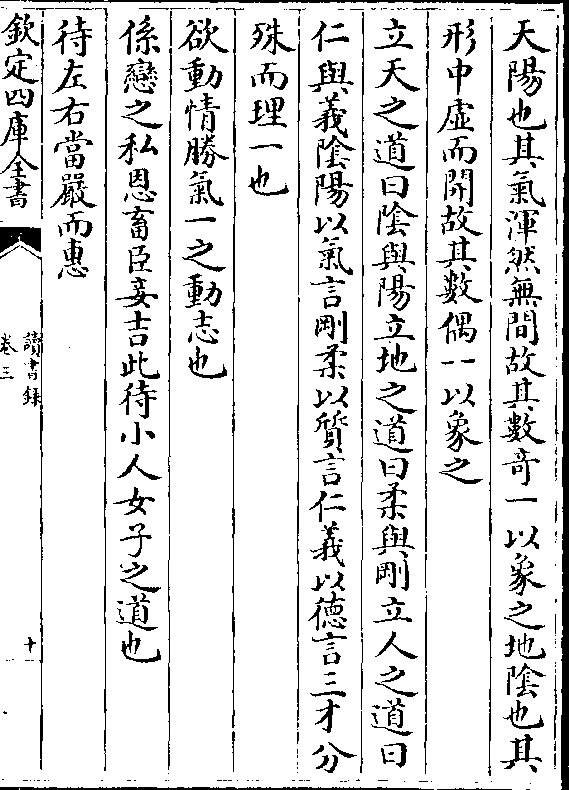 天陽也其氣渾然無間故其數奇一以象之地陰也其
形中虛而開故其數偶一以象之
立天之道曰陰與陽立地之道曰柔與剛立人之道曰
仁與義陰陽以氣言剛柔以質言仁義以德言三才分
殊而理一也
欲動情勝氣一之動志也
係戀之私恩畜臣妾吉此待小人女子之道也
待左右當嚴而惠
欽定四庫全書
讀書録
卷三
十